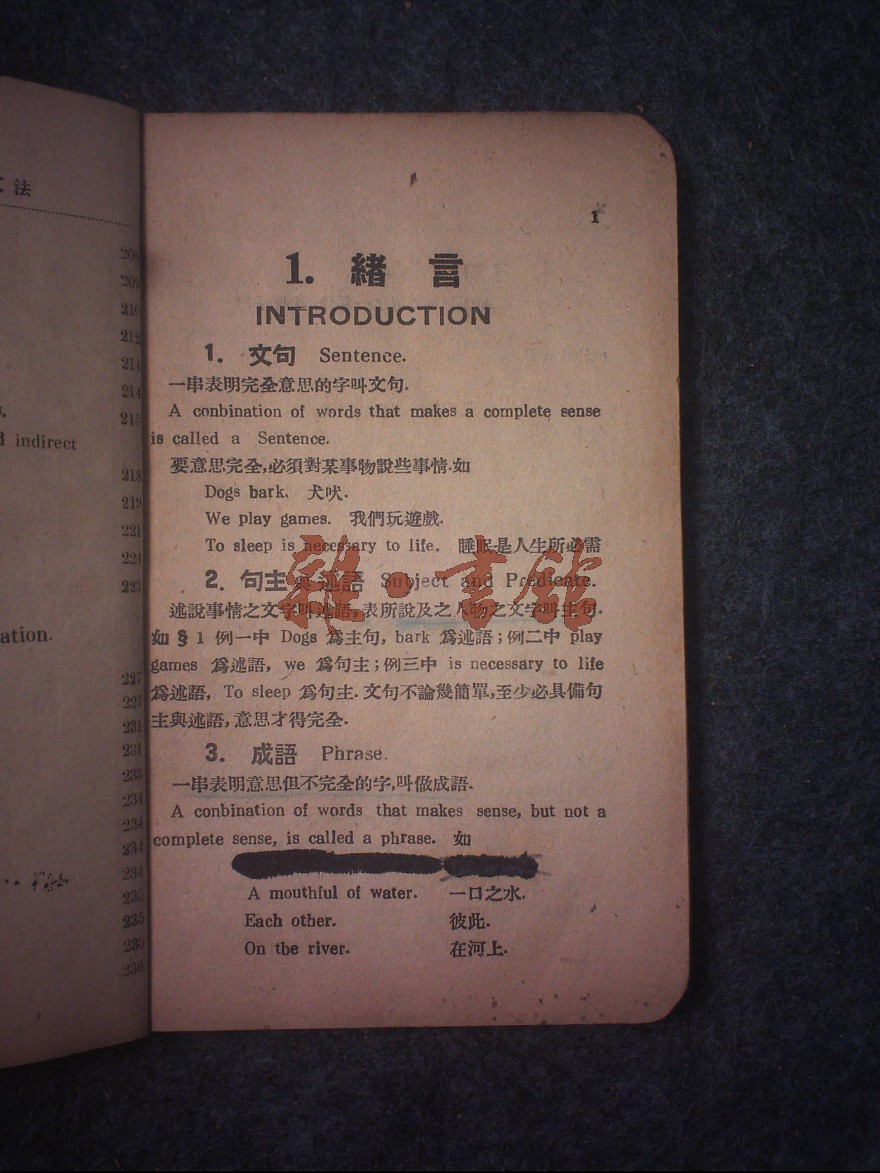 法
208
209
210
212
214
214
215
indirect
218
219
221
221
223
ation.
227
227
231
231
233
234
234
234
234
235
235
236
236
1
1. 緒 言
INTRODUCTION
1. 文句 Sentence.
一串表明完全意思的字叫文句.
A conbination of words that makes a complete sense
is called a Sentence.
要意思完全,必須對某事物說些事情.如
Dogs bark. 犬吠.
We play games. 我們玩遊戲.
To sleep is necessary to life. 睡眠是人生所必需
2. 句主與述語 Subject and Predicate.
述說事情之文字叫述語,表所說及之人物之文字叫主句.
如 § 1 例一中 Dogs 爲主句, bark 爲述語;例二中 play
games 爲述語, we 爲句主;例三中 is necessary to life
爲述語, To sleep 爲句主.文句不論幾簡單,至少必具備句
主與述語,意思才得完全.
3. 成語 Phrase.
一串表明意思但不完全的字,叫做成語.
A conbination of words that makes sense, but not a
complete sense, is called a phrase. 如
A mouthful of water. 一口之水.
Each other. 彼此.
On the river. 在河上.
雜·書館